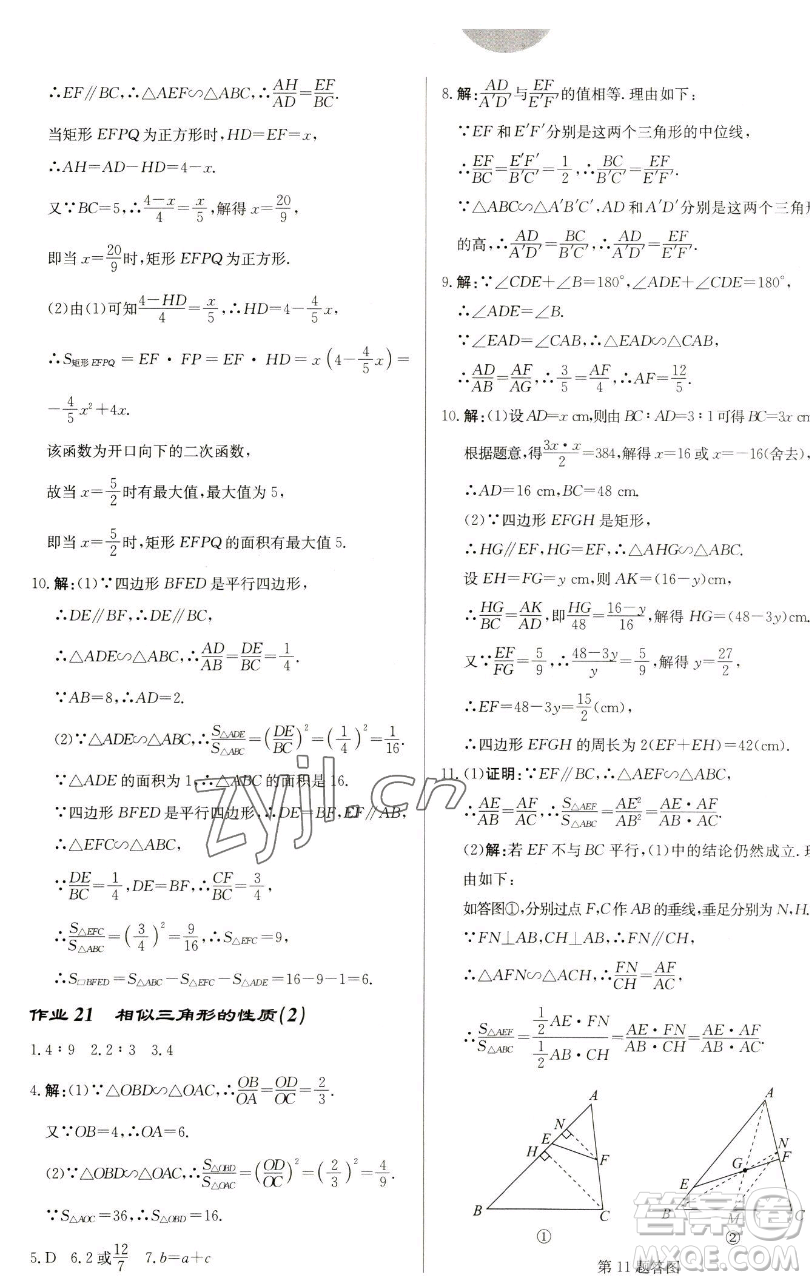 ∴EF∥BC,∴△AEF∽△ABC,∴AH/AD=EF/BC.
当矩形 EFPQ 为正方形时,HD=EF=x,
∴AH=AD-HD=4-x.
又∵BC=5,∴(4-x)/4=x/5,解得 x=20/9,
即当 x=20/9时,矩形 EFPQ 为正方形.
(2)由(1)可知(4-HD)/4=x/5,∴HD=4-4/5x,
∴S矩形EFPQ=EF·FP=EF·HD=x(4-4/5x)=
-4/5x²+4x.
该函数为开口向下的二次函数,
故当 x=5/2时有最大值,最大值为 5,
即当 x=5/2时,矩形 EFPQ 的面积有最大值 5.
10.解:(1)∵四边形 BFED 是平行四边形,
∴DE∥BF,∴DE∥BC,
∴△ADE∽△ABC,∴AD/AB=DE/BC=1/4.
∵AB=8,∴AD=2.
(2)∵△ADE∽△ABC,∴S△ADE/S△ABC=(DE/BC)²=(1/4)²=1/16.
∵△ADE 的面积为 1,∴△ABC 的面积是 16.
∵四边形 BFED 是平行四边形,∴DE=BF,EF∥AB,
∴△EFC∽△ABC,
∵DE/BC=1/4,DE=BF,∴CF/BC=3/4,
∴S△EFC/S△ABC=(3/4)²=9/16,∴S△EFC=9,
∴S□BFED=S△ABC-S△EFC-S△ADE=16-9-1=6.
作业 21 相似三角形的性质(2)
1.4∶9 2.2∶3 3.4
4.解:(1)∵△OBD∽△OAC,∴OB/OA=OD/OC=2/3.
又∵OB=4,∴OA=6.
(2)∵△OBD∽△OAC,∴S△OBD/S△OAC=(OD/OC)²=(2/3)²=4/9.
∵S△AOC=36,∴S△OBD=16.
5.D 6.2或12/7 7.b=a+c
8.解:AD/A′D′与EF/E′F′的值相等.理由如下:
∵EF 和 E′F′分别是这两个三角形的中位线,
∴EF/BC=E′F′/B′C′=1/2,∴BC/B′C′=EF/E′F′.
∵△ABC∽△A′B′C′,AD 和 A′D′分别是这两个三角形
的高,∴AD/A′D′=BC/B′C′,∴AD/A′D′=EF/E′F′.
9.解:∵∠CDE+∠B=180°,∠ADE+∠CDE=180°,
∴∠ADE=∠B.
∵∠EAD=∠CAB,∴△EAD∽△CAB,
∴AD/AB=AF/AG,∴3/5=AF/4,∴AF=12/5.
10.解:(1)设 AD=x cm,则由 BC∶AD=3∶1 可得 BC=3x cm
根据题意,得(3x·x)/2=384,解得 x=16或 x=-16(舍去),
∴AD=16 cm,BC=48 cm.
(2)∵四边形 EFGH 是矩形,
∴HG∥EF,∴△AHG∽△ABC.
设 EH=FG=y cm,则 AK=(16-y)cm,
∴HG/BC=AK/AD,即HG/48=(16-y)/16,解得 HG=(48-3y)cm.
又∵EF/FG=5/9,∴(48-3y)/y=5/9,解得 y=27/2,
∴EF=48-3y=15/2(cm),
∴四边形 EFGH 的周长为 2(EF+EH)=42(cm).
11.(1)证明:∵EF∥BC,∴△AEF∽△ABC,
∴AE/AB=AF/AC,∴S△AEF/S△ABC=AE²/AB²=AE·AF/AB·AC.
(2)解:若 EF 不与 BC 平行,(1)中的结论仍然成立.理
由如下:
如答图①,分别过点 F,C 作 AB 的垂线,垂足分别为 N,H.
∵FN⊥AB,CH⊥AB,∴FN∥CH,
∴△AFN∽△ACH,∴FN/CH=AF/AC,
∴S△AEF/S△ABC=(1/2AE·FN)/(1/2AB·CH)=AE·AF/AB·AC.
A
N
E
H
F
B
C
①
A
N
G
F
E
B
M
C
②
第 11 题答图
zyjl.cn
答案圈
MXQE.COM